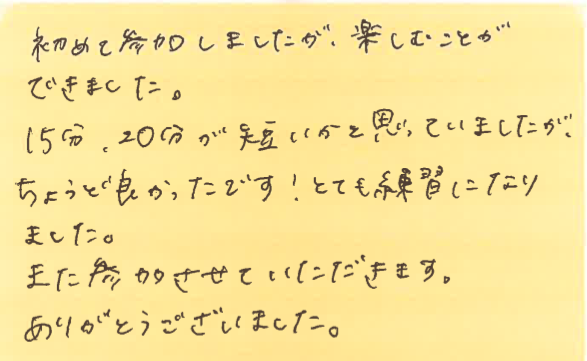 初めて参加しましたが、楽しむことが
できました。
15分、20分が短いかと思っていましたが、
ちょうど良かったです！とても練習になり
ました。
また参加させていただきます。
ありがとうございました。